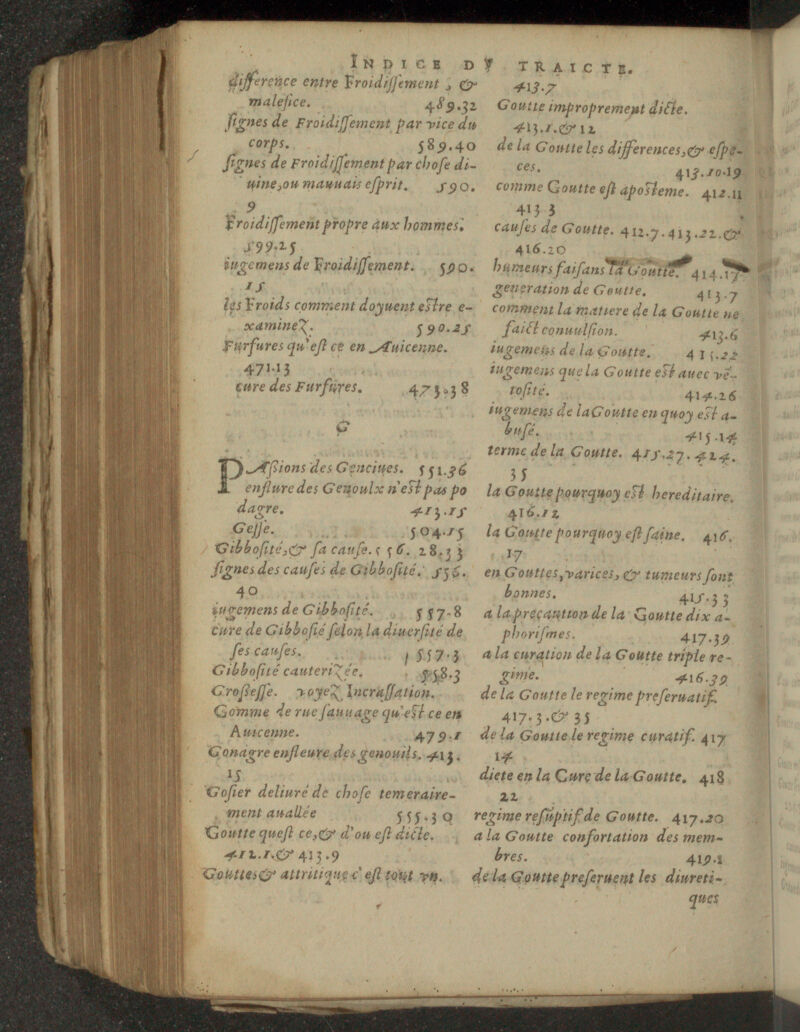 INDICE DV TRAICTE.
difference entre Froidissement, &
malefice. 489.32
signes de Froidissement par vice du
corps. 589.40
signes de Froidissement par chose di-
uine, ou mauuais esprit. 590.
9
Froidissement propre aux hommes.
599.25
iugemens de Froidissement. 590.
15
les Froids comment doyuent estre e-
xaminez. 590.25
Furfures qu'est ce en Auicenne.
471.13
cure des Furfures. 473.38
G
PAssions des Genciues. 551.36
enflure des Genoulx n'est pas po
dagre. 413.15
Gesse. 504.15
Gibbosité, & sa cause. 556. 28.33
signes des causes de Gibbosité. 556.
40
iugemens de Gibbosité. 557.8
cure de Gibbosié selon la diuersité de
ses causes. 557.3
Gibbosité cauterizée. 558.3
Grossesse. voyez Incrassation.
Gomme de rue sauuage qu'est ce en
Auicenne. 479.1
Gonagre enfleure des genouils. 413.
15
Gosier deliuré de chose temeraire-
ment auallée 555.30
Goutte quest ce, & d'ou est dicte.
412.1. & 413.9
Gouttes & attritique c'est tout vn.
413.7
Goutte improprement dicte.
413.1. & 12
de la Goutte les differences, & espe-
ces. 413.10.19
comme Goutte est aposteme. 412.11
413 3
causes de Goutte. 412.7.413.22. &
416.20
humeurs faisans la Goutte. 414.17
generation de Goutte. 413.7
comment la matiere de la Goutte ne
faict conuulsion. 413.6
iugemens de la Goutte. 415.22
iugemens que la Goutte est auec vé-
tosité. 414.26
iugemens de la Goutte en quoy est a-
busé. 415.14
terme de la Goutte. 415.27. 424.
35
la Goutte pourquoy est hereditaire.
416.12
la Goutte pourquoy est saine. 416.
17
en Gouttes, varices, & tumeurs sont
bonnes. 415.33
a la precaution de la Goutte dix a-
phorismes. 417.39
a la curation de la Goutte triple re-
gime. 416.39
de la Goutte le regime preseruatif.
417.3. & 35
de la Goutte le regime curatif. 417
14
diete en la Cure de la Goutte. 418
22
regime resuptif de Goutte. 417.20
a la Goutte confortation des mem-
bres. 419.1
de la Goutte preseruent les diureti-
ques